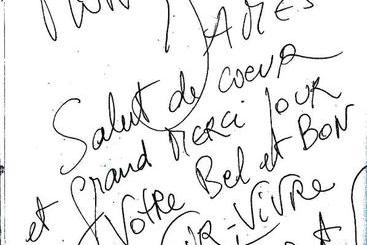 AMES
Salut de coeur
et Grand MERCI POUR
VOTRE Bel et BON
-VIVRE